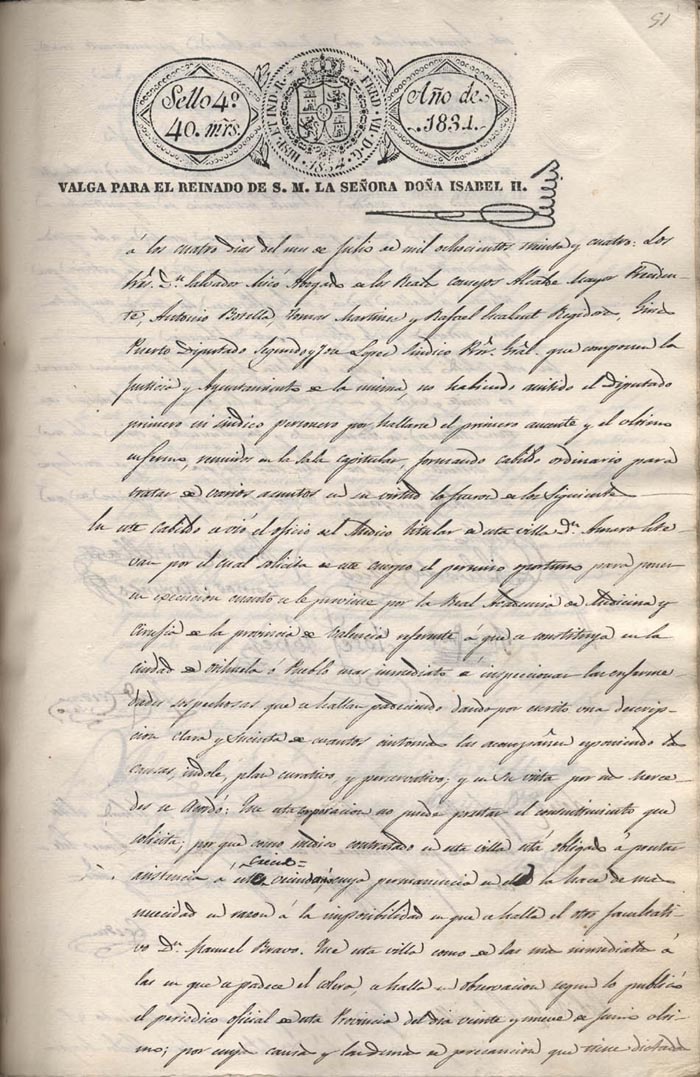 51
Sello 4º
40. mrs.
HISP. ET IND. R. FERD. VII. D. G.
1834
Año de
1834.
VALGA PARA EL REINADO DE S. M. LA SEÑORA DOÑA ISABEL II.
á los cuatro dias del mes de Julio de mil ochocientos treinta y cuatro: Los
Sres. Dn. Salvador Abogado de los Reales consejos Alcalde Mayor Preciden-
te, Antonio Botella, Tomas Martinez y Rafael Regidores, Gines
Puerto Diputado segundo y José Lopez Sindico Pror. Gral. que componen la
Justicia y Ayuntamiento de la misma, no habiendo asistido el Diputado
primero ni sindico personero por hallarse el primero ausente y el ultimo
enfermo, reunidos en la sala capitular, formando cabildo ordinario para
tratar de varios asuntos en su virtud lo fueron de los siguientes
En este cabildo se vió el oficio del Medico titular de esta villa Dn.
por el cual solicita de este cuerpo el permiso oportuno para poner
en ejecucion cuanto se le previene por la Real Academia de Medicina y
Cirujia de la provincia de Valencia referente á que se constituya en la
ciudad de Orihuela ó Pueblo mas inmediato á inspeccionar las enferme
dades sospechosas que se hallan padeciendo dando por escrito una descrip-
cion clara y sucinta de cuantos sintomas las acompañen esponiendo las
causas, indole, plan curativo, y preservativo; y en su vista por sus merce-
des se acordó: Que esta corporacion no puede prestar el consentimiento que
solicita; por que como medico contratado en esta villa está obligado á prestar
asistencia á este vecindario cuya permanencia en el la hace de mas
necesidad en razon á la imposibilidad en que se halla el otro facultati-
vo Dn. Manuel Bravo. Que esta villa como de las mas inmediatas á
las en que se padece el colera, se halla en observacion segun lo publicó
el periodico oficial de esta Provincia del dia veinte y nueve de Junio ulti-
mo; por cuya causa y las demas de precaucion que tiene dictadas